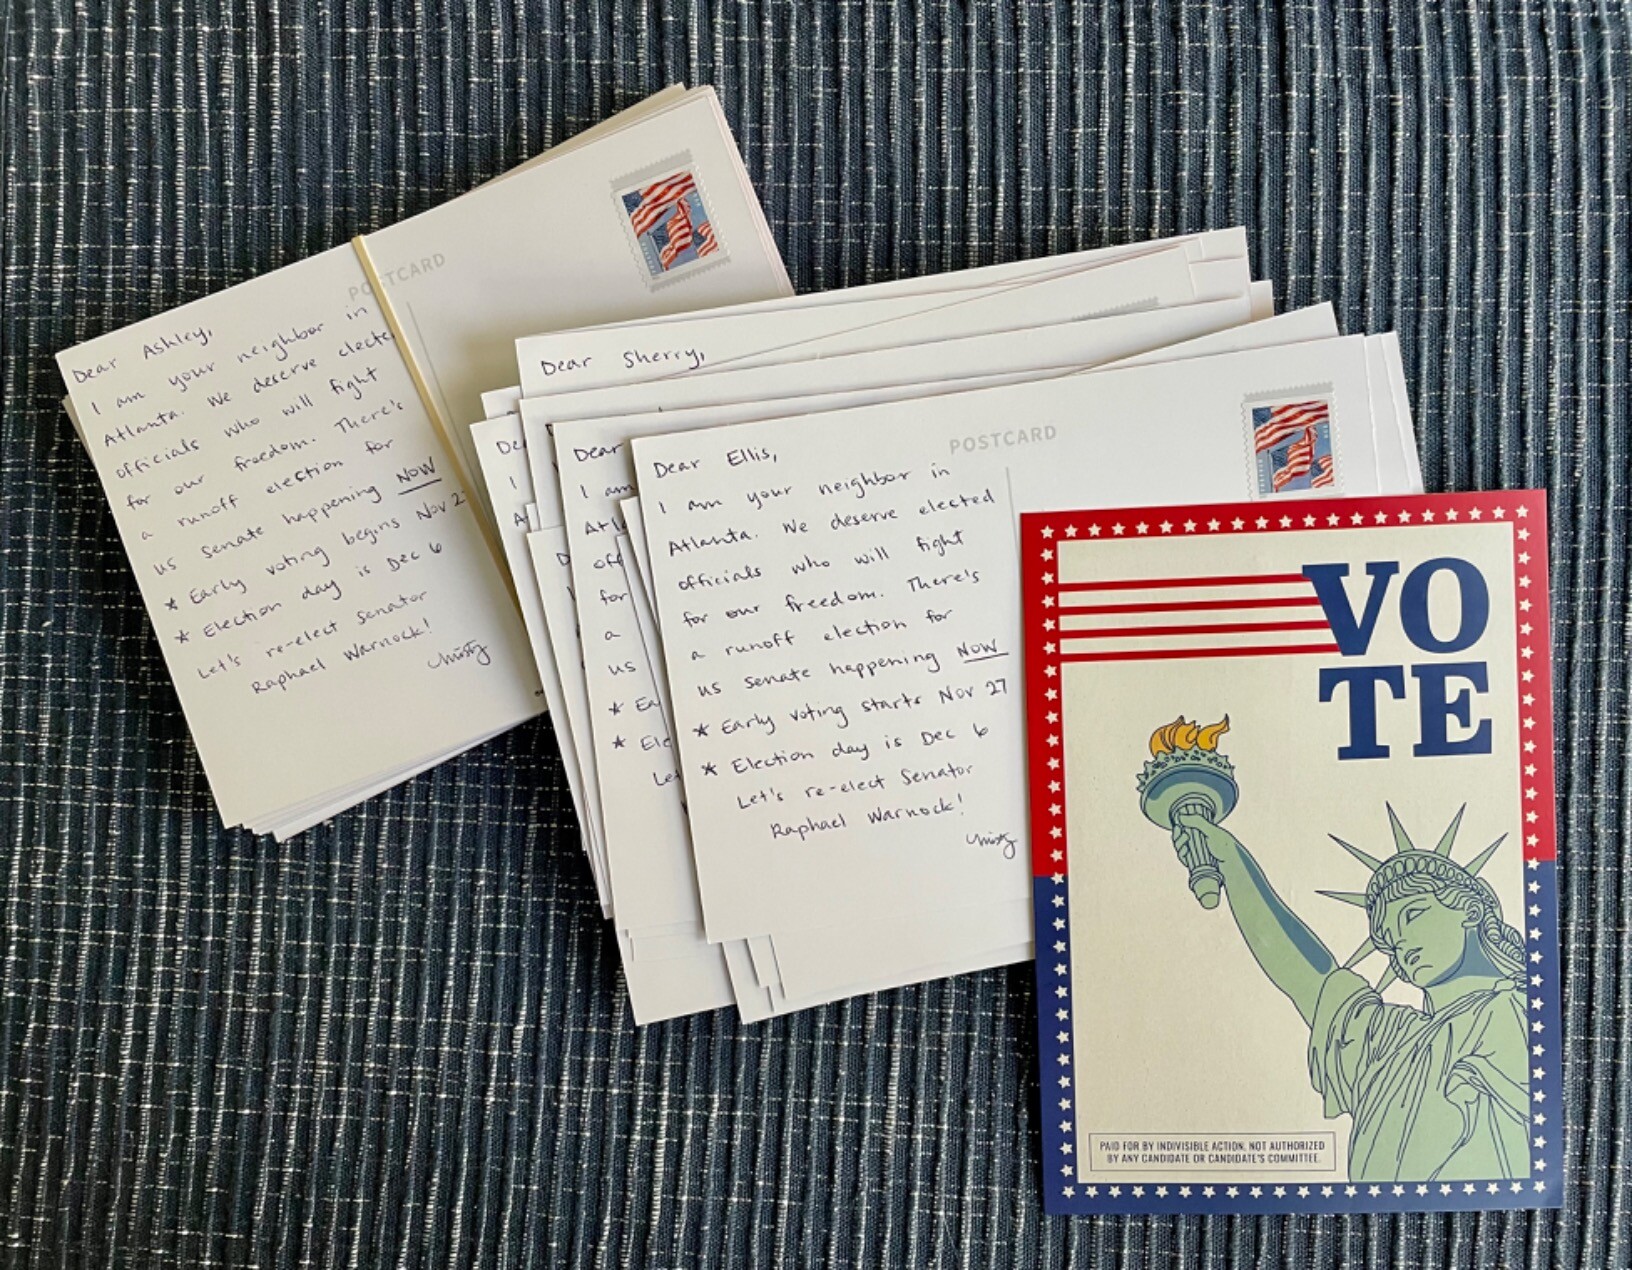 POSTCARD
Dear Ashley,
I am your neighbor in
Atlanta. We deserve
officials who will fight
for our freedom. There's
a runoff election for
US Senate happening NOW
* Early voting begins Nov
* Election day is Dec 6
Let's re-elect Senator
Raphael Warnock!
Christy
Dear Sherry,
Dear
I am
off
for
a
us
POSTCARD
Dear Ellis,
I am your neighbor in
Atlanta. We deserve elected
officials who will fight
for our freedom. There's
a runoff election for
US Senate happening NOW
* Early voting starts Nov 27
* Election day is Dec 6
Let's re-elect Senator
Raphael Warnock!
Christy
VO
TE
PAID FOR BY INDIVISIBLE ACTION. NOT AUTHORIZED
BY ANY CANDIDATE OR CANDIDATE'S COMMITTEE.